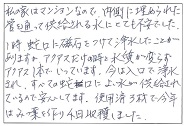 私の家はマンションなので、内側に埋められた
管を通って供給される水にとても不安でした。
1時蛇口に磁石をつけて浄水したことが
ありますが、アクアスだけの時と水質が変らず
アクアス1本でいっています。今は入口で浄水
され、すべての蛇口によい水が供給されて
いるので安心してます。使用済みはで今年
はみ葉を作り4日収穫しました。